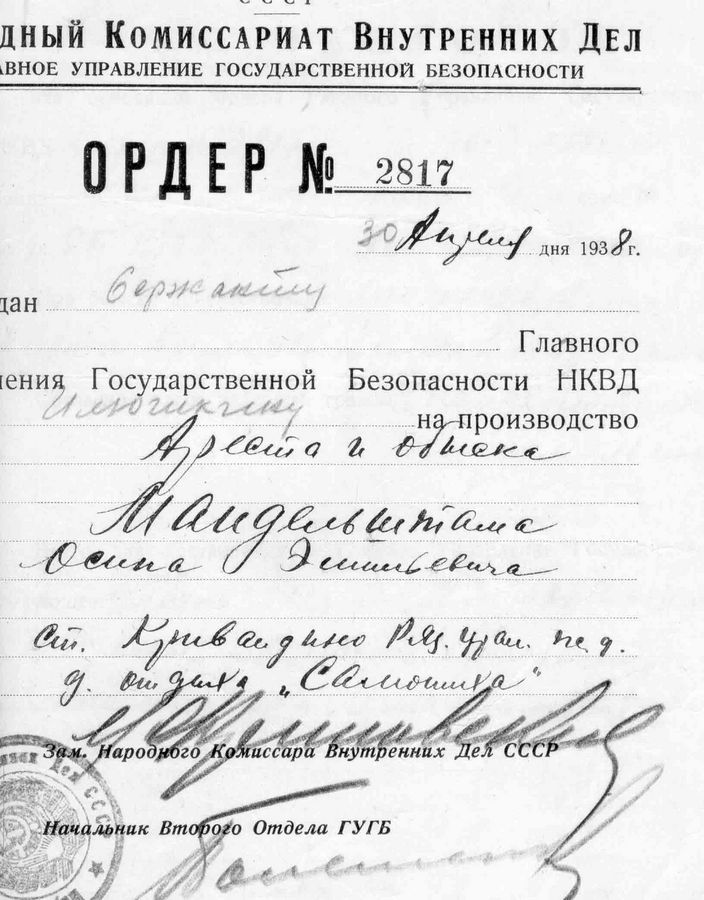 СССР
дный Комиссариат Внутренних Дел
авное управление государственной безопасности
ОРДЕР № 2817
30 Апреля дня 1938 г.
дан Сержанту
Главного
ления Государственной Безопасности НКВД
на производство
Ареста и обыска
Мандельштама
Осипа Эмильевича
ст. Кривандино Ряз. ж. д.
д. отдыха „Саматиха"
Зам. Народного Комиссара Внутренних Дел СССР
Начальник Второго Отдела ГУГБ
Дел СССР